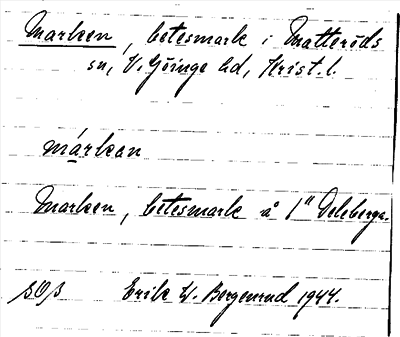 Marken, betesmark i Matteröds
sn, V. Göinge hd, Krist. l.
márkan
Marken, betesmark å 1" Deleberga.
SOß Erik W. Bergenrud 1944.